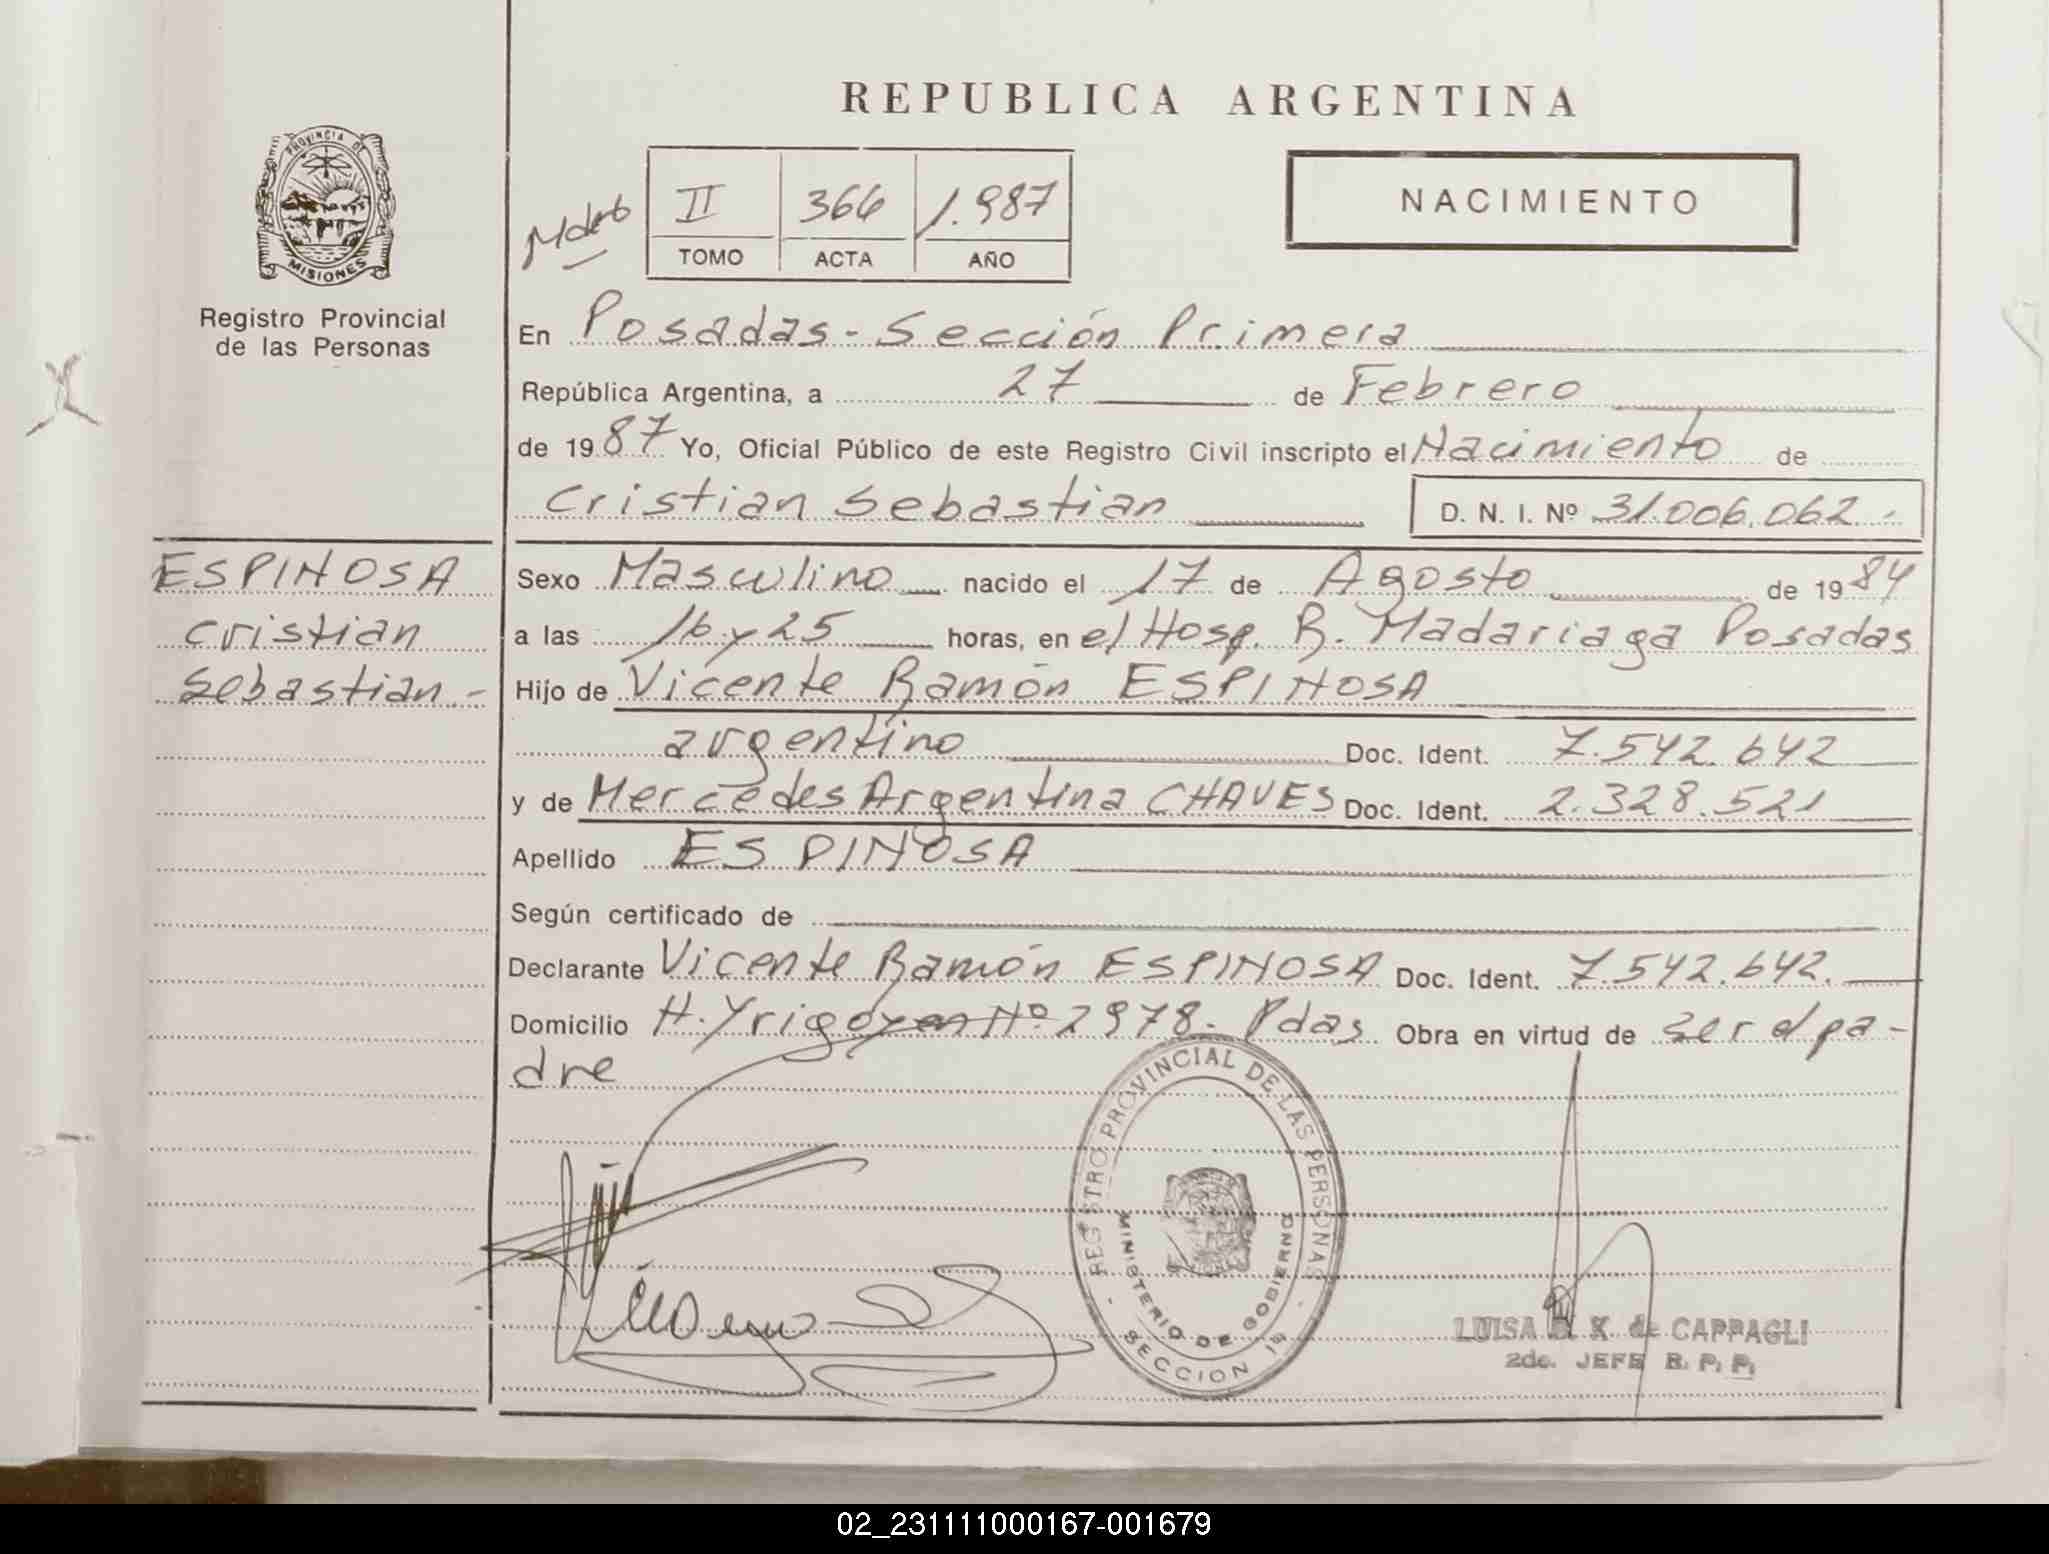 REPUBLICA ARGENTINA
PROVINCIA DE
MISIONES
Registro Provincial
de las Personas
II 366 1.987
TOMO ACTA AÑO
NACIMIENTO
En Posadas - Sección Primera
República Argentina, a 27 de Febrero
de 1987 Yo, Oficial Público de este Registro Civil inscripto el Nacimiento de
Cristian Sebastian D. N. I. Nº 31.006.062.-
ESPINOSA
Cristian
Sebastian.-
Sexo Masculino nacido el 17 de Agosto de 1984
a las 16 y 25 horas, en el Hosp. R. Madariaga Posadas
Hijo de Vicente Ramón ESPINOSA
argentino Doc. Ident. 7.542.642
y de Mercedes Argentina CHAVES Doc. Ident. 2.328.521
Apellido ESPINOSA
Según certificado de
Declarante Vicente Ramón ESPINOSA Doc. Ident. 7.542.642.
Domicilio H. Yrigoyen Nº 2978. Pdas Obra en virtud de ser el pa-
dre
REGISTRO PROVINCIAL DE LAS PERSONAS
MINISTERIO DE GOBIERNO
SECCION 1ª
LUISA K. de CAPPAGLI
2do. JEFE R. P. P.
02_231111000167-001679